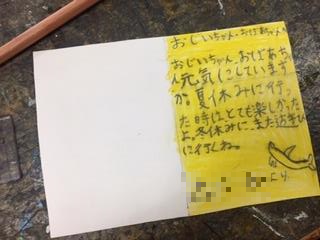 おじいちゃん、おばあちゃんへ
おじいちゃん、おばあち
ゃん元気にしています
か。夏休みに行っ
た時はとても楽しかった
よ。冬休みに、また遊び
に行くね。
より